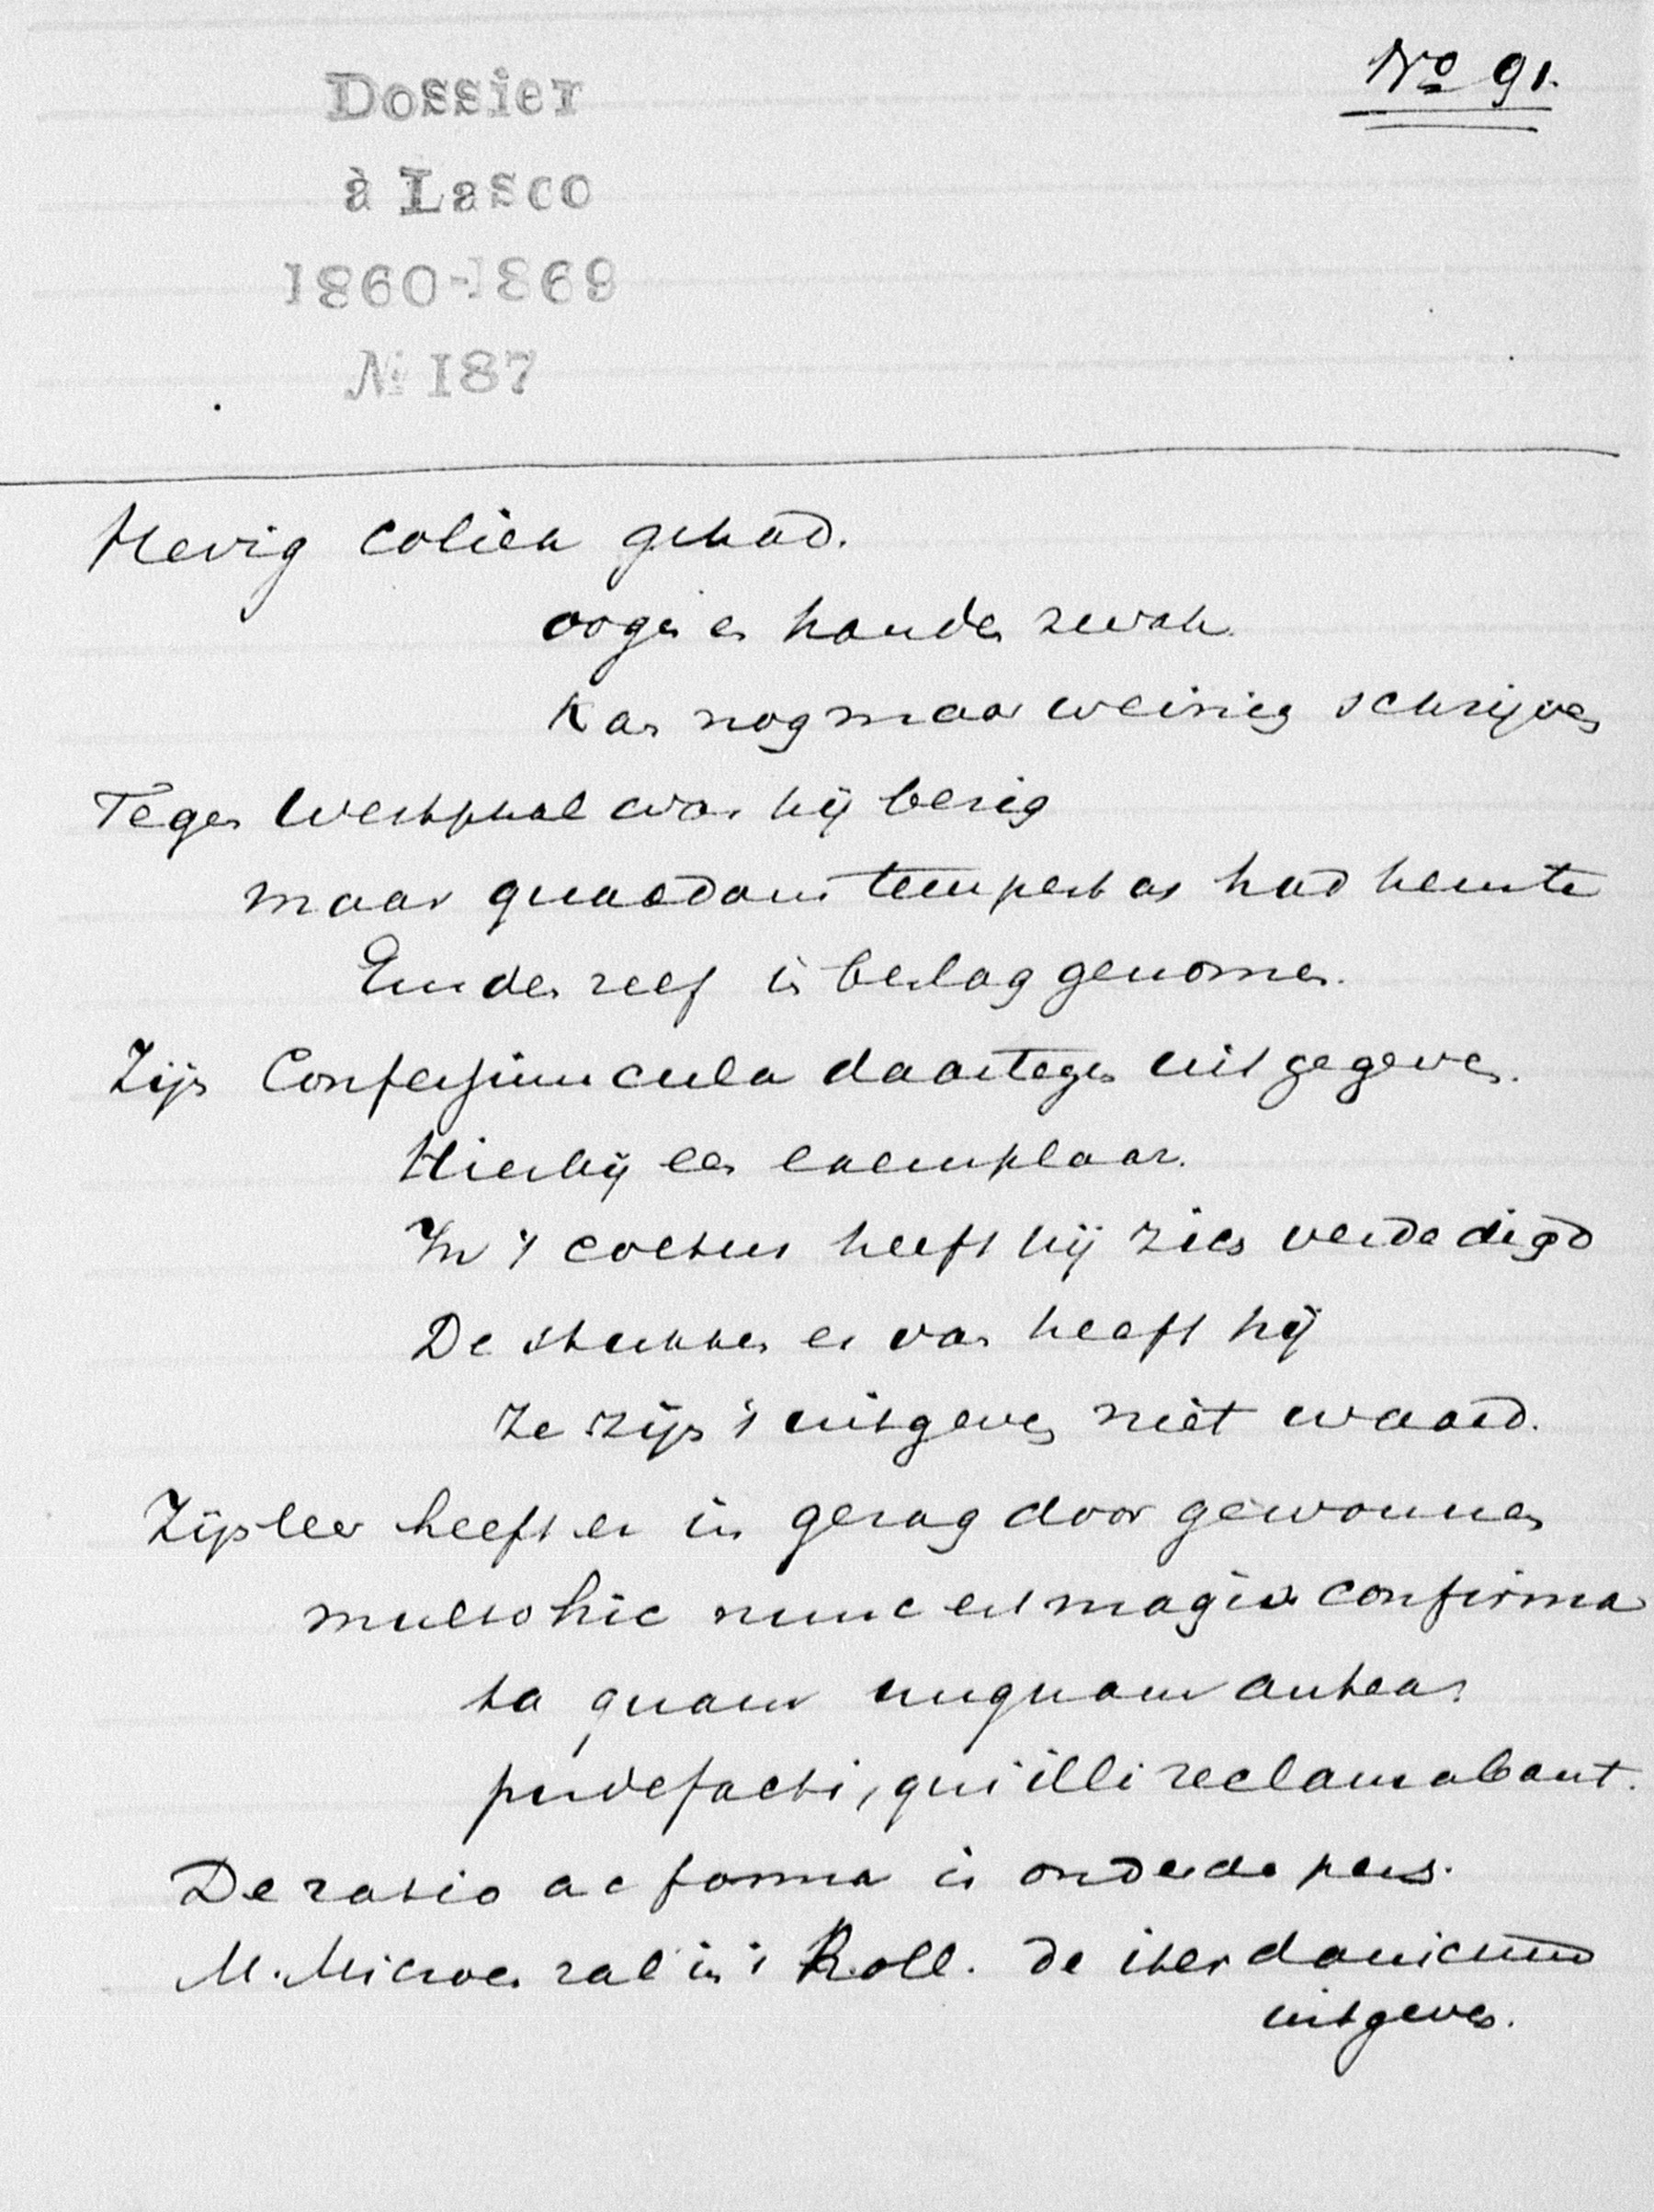 No 91.
Dossier
à Lasco
1860-1869
No 187
Hevig coliek gehad.
oogen en handen zwak.
Kan nog maar weinig schrijven
Tegen Westphal was hij bezig
maar quaedam tempestas had hem te
Emden zelf in beslag genomen.
Zijn Confessiuncula daartegen uitgegeven.
Hierbij een exemplaar.
In 't coetus heeft hij zich verdedigd
De stukken er van heeft hij
Ze zijn 't uitgeven niet waard.
Zijn leer heeft er in gezag door gewonnen
multo hic nunc est magis confirma
ta quam unquam antea
pudefacti, qui illi reclamabant.
De ratio ac forma is onder de pers.
M. Micron zal in 't Holl. de iter danicum
uitgeven.